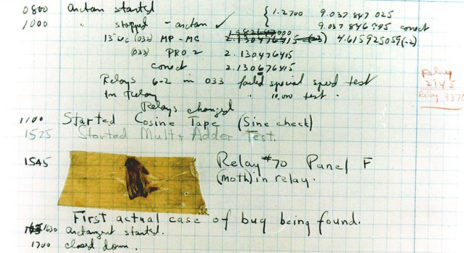 0800 Arctan started { 1.2700 9.037 847 025
1000 " stopped - arctan ✓ 9.037 846 995 correct
13"uc (032) MP - MC 2.130476415 4.615925059(-2)
(033) PRO 2 2.130476415
correct 2.130676415
Relays 6-2 in 033 failed special speed test
in Relay " 10.000 test.
Relays changed
1100 Started Cosine Tape (Sine check)
1525 Started Mult+ Adder Test.
1545 Relay #70 Panel F
(moth) in relay.
First actual case of bug being found.
1630 arctangent started.
1700 closed down.
Relay